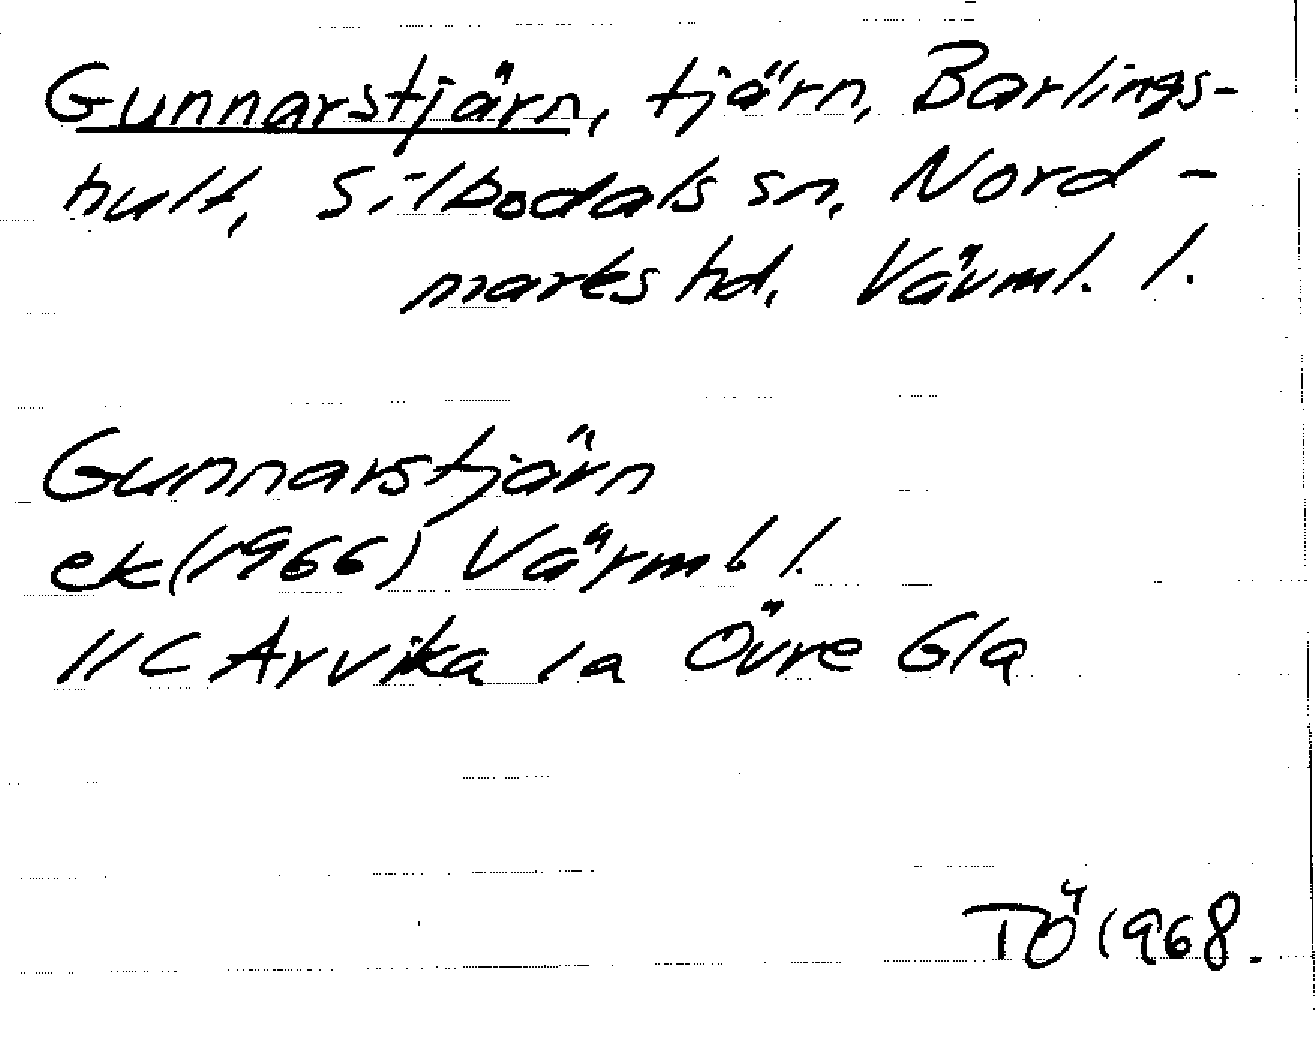 Gunnarstjärn, tjärn, Barlings-
hult, Silbodals sn, Nord-
marks hd, Värml. l.
Gunnarstjärn
ek(1966) Värml. l.
11 C Arvika 1a Övre Gla
TÖ 1968.